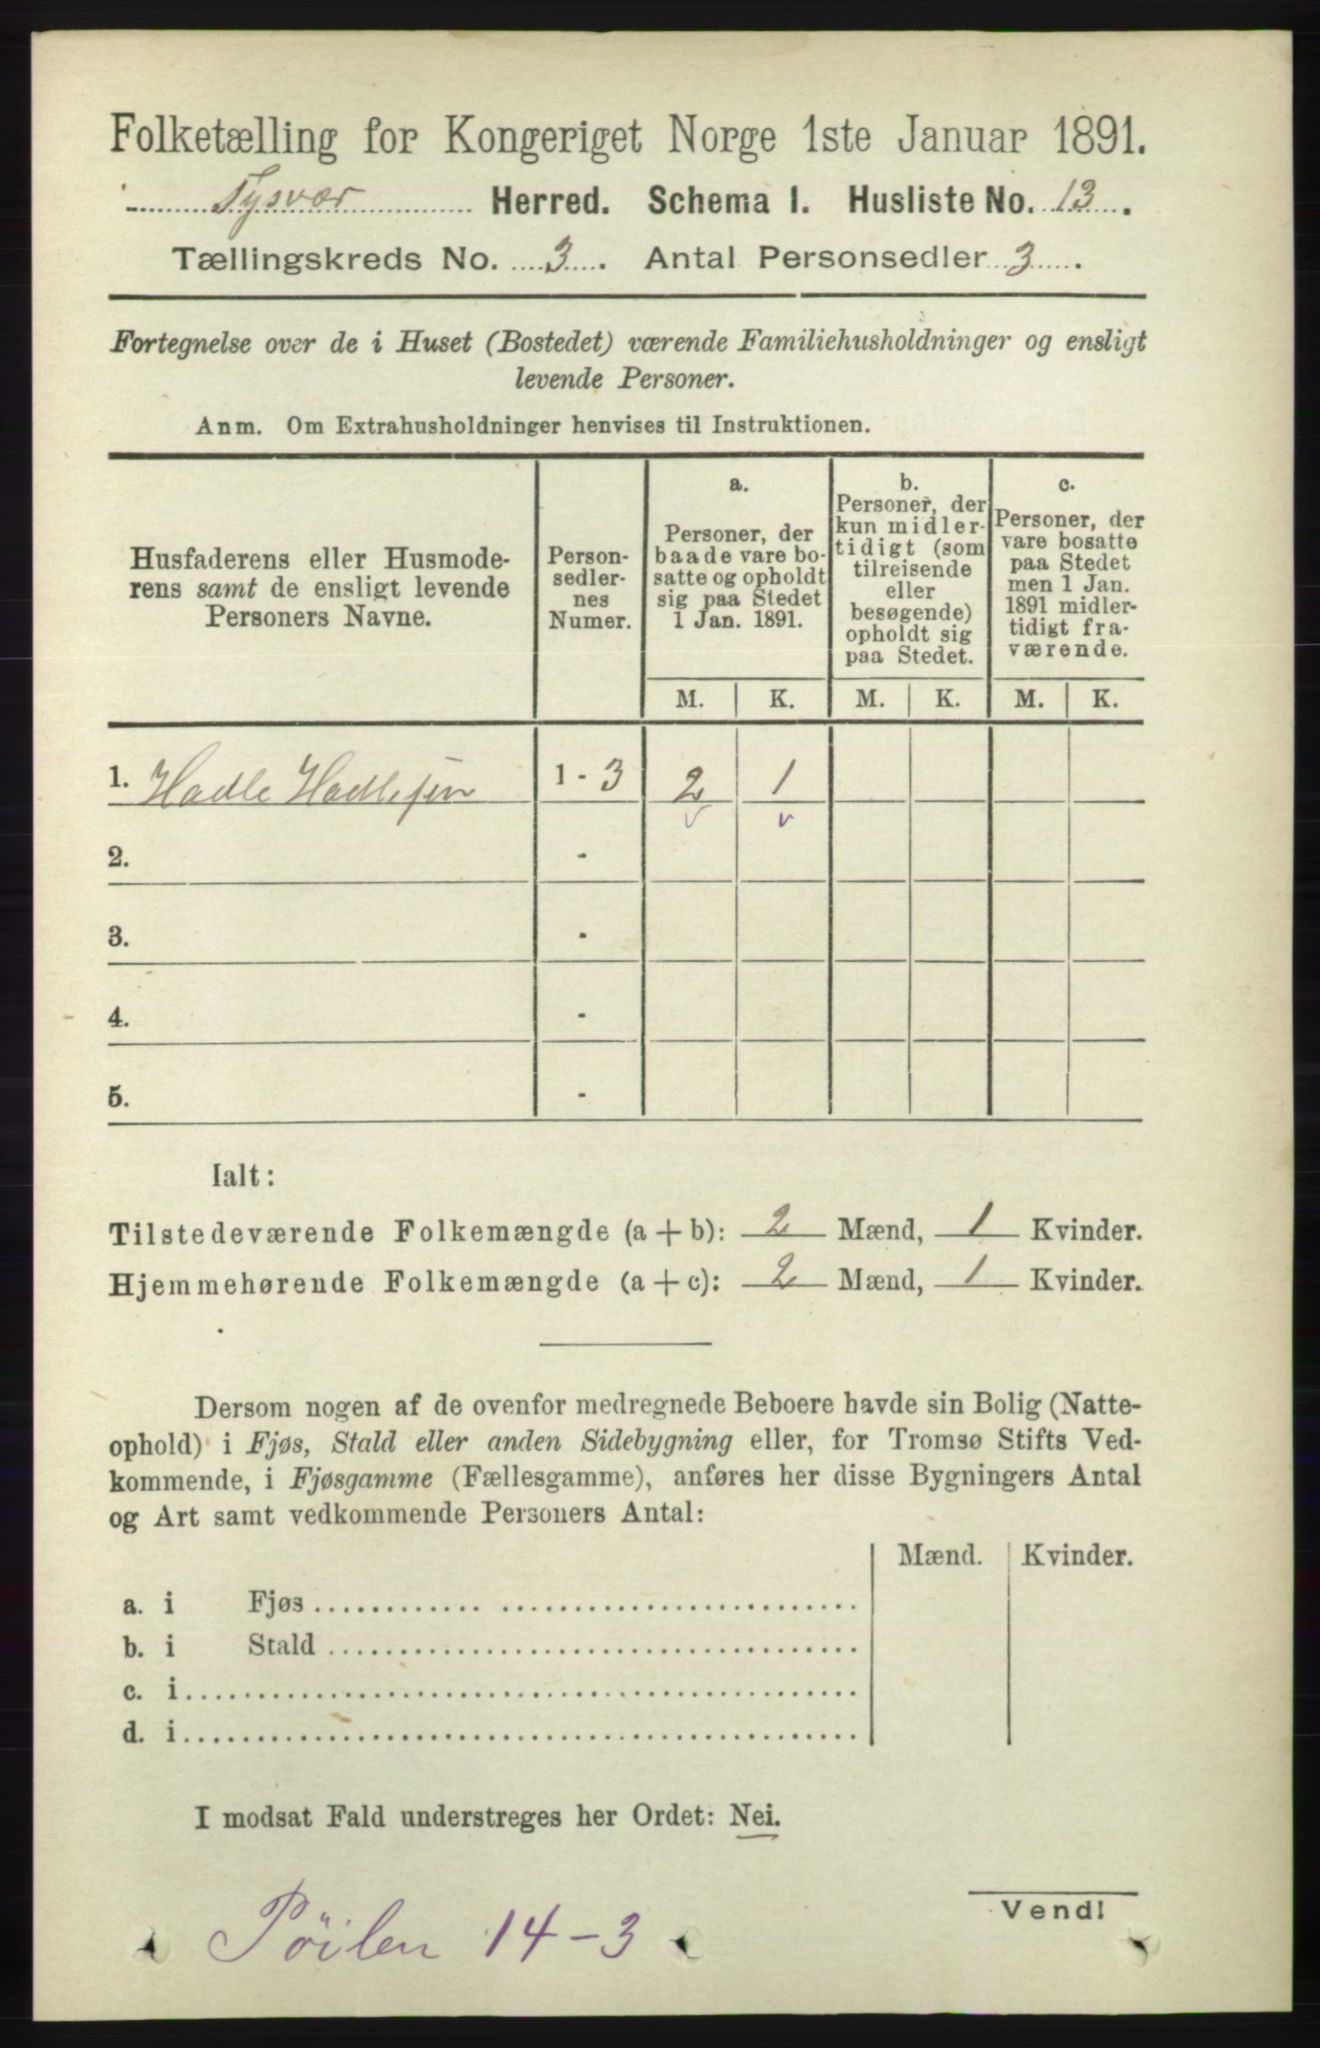 Folketælling for Kongeriget Norge 1ste Januar 1891.
Tysvær Herred. Schema I. Husliste No. 13.
Tællingskreds No. 3. Antal Personsedler 3.
Fortegnelse over de i Huset (Bostedet) værende Familiehusholdninger og ensligt
levende Personer.
Anm. Om Extrahusholdninger henvises til Instruktionen.
Husfaderens eller Husmode-
rens samt de ensligt levende
Personers Navne.
Person-
sedler-
nes
Numer.
a.
Personer, der
baade vare bo-
satte og opholdt
sig paa Stedet
1 Jan. 1891.
b.
Personer, der
kun midler-
tidigt (som
tilreisende
eller
besøgende)
opholdt sig
paa Stedet.
c.
Personer, der
vare bosatte
paa Stedet
men 1 Jan.
1891 midler-
tidigt fra-
værende.
M. K. M. K. M. K.
1. Hadle Hadlesen 1 - 3 2 1
v v
2. -
3. -
4. -
5. -
Ialt:
Tilstedeværende Folkemængde (a + b): 2 Mænd, 1 Kvinder.
Hjemmehørende Folkemængde (a + c): 2 Mænd, 1 Kvinder.
Dersom nogen af de ovenfor medregnede Beboere havde sin Bolig (Natte-
ophold) i Fjøs, Stald eller anden Sidebygning eller, for Tromsø Stifts Ved-
kommende, i Fjøsgamme (Fællesgamme), anføres her disse Bygningers Antal
og Art samt vedkommende Personers Antal:
Mænd. Kvinder.
a. i Fjøs
b. i Stald
c. i
d. i
I modsat Fald understreges her Ordet: Nei.
Vend!
Pöilen 14-3